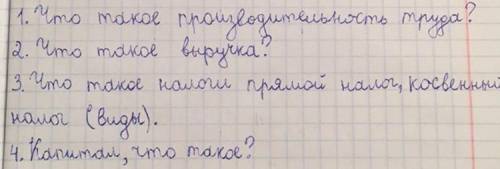 1. Что такое производительность труда?
2. Что такое выручка?
3. Что такое налоги прямой налог, косвенный
налог (виды).
4. Капитал, что такое?